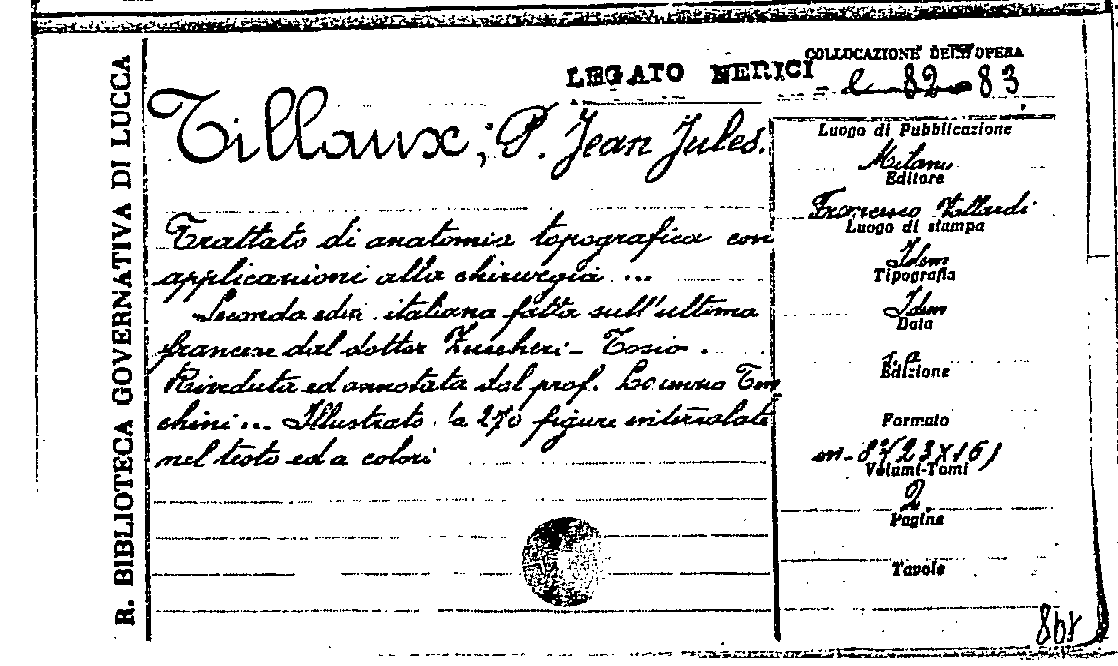 R. BIBLIOTECA GOVERNATIVA DI LUCCA
LEGATO NERICI
COLLOCAZIONE DELL'OPERA
l - 82 - 83
Tillaux; P. Jean Jules.
Trattato di anatomia topografica con
applicazioni alla chirurgia ...
Seconda ediz. italiana fatta sull'ultima
francese dal dottor Zuccheri-Tosio.
Riveduta ed annotata dal prof. Lorenzo Ten
chini ... Illustrato da 270 figure intercalate
nel testo ed a colori
Luogo di Pubblicazione
Milano
Editore
Francesco Vallardi
Luogo di stampa
Idem
Tipografia
Idem
Data
s. a.
Edizione
Formato
in-8°(23X16)
Volumi-Tomi
2
Pagine
Tavole